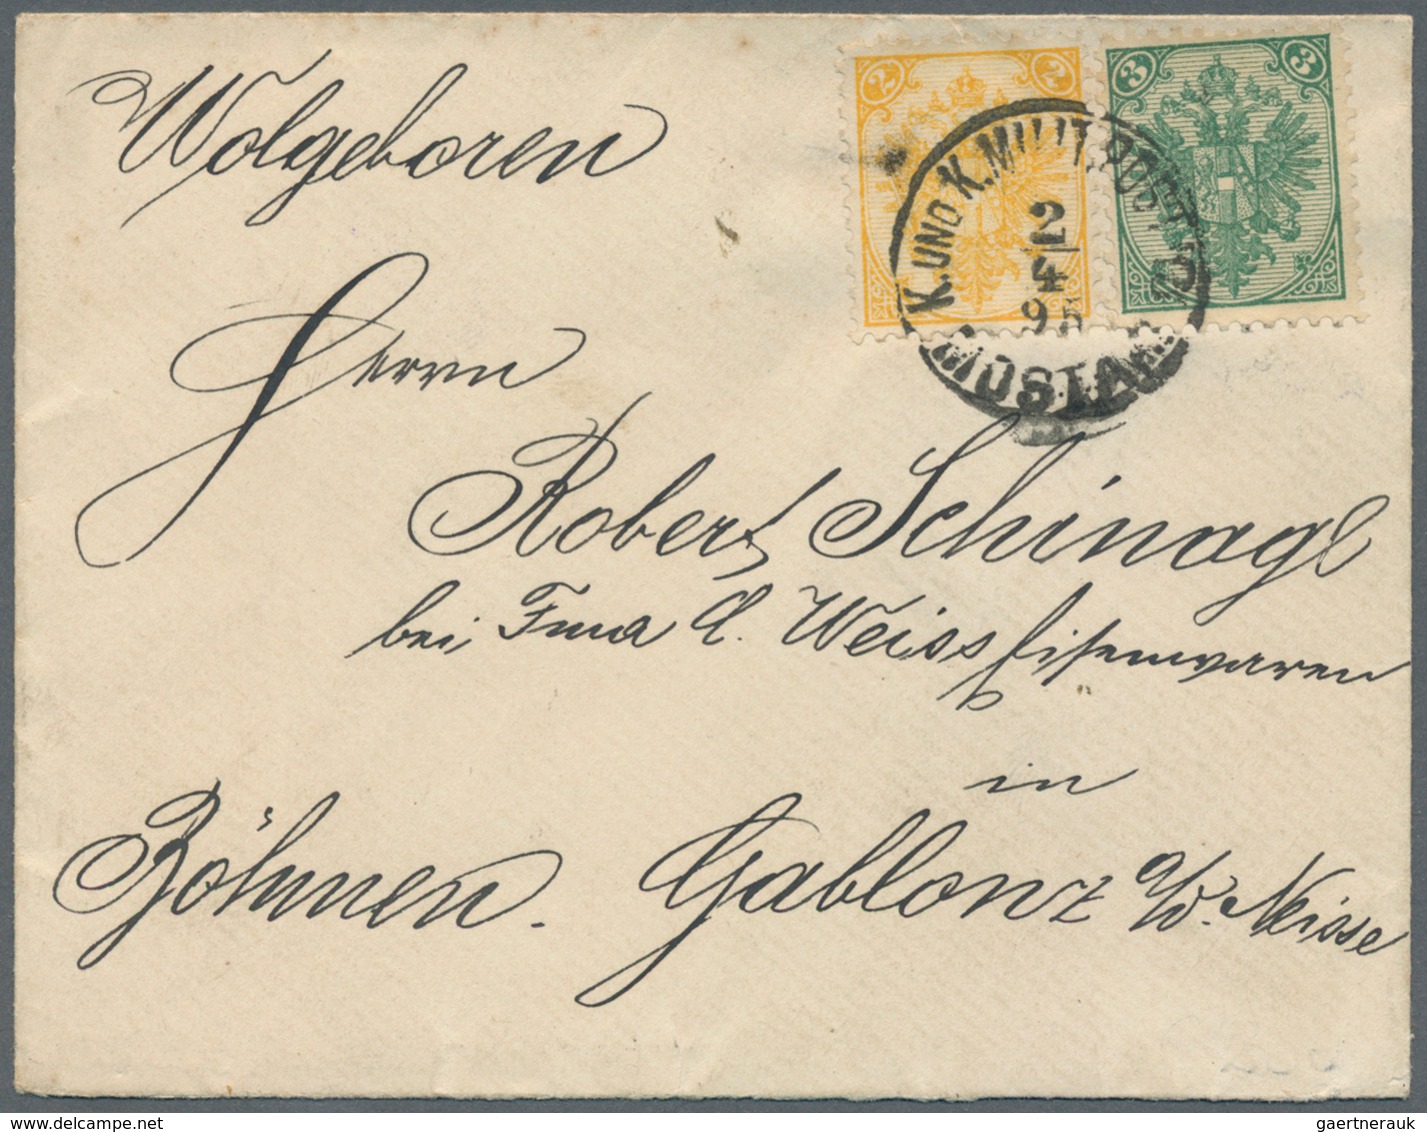 Wolgeboren
2 2
3 3
K. UND K. MILIT. POST
2/4
95
MOSTAR
Herrn
Robert Schinagl
bei Fma A. Weiss Eisenwaren
in
Böhmen. Gablonz a/d. Neisse
www.delcampe.net
gaertnerauk